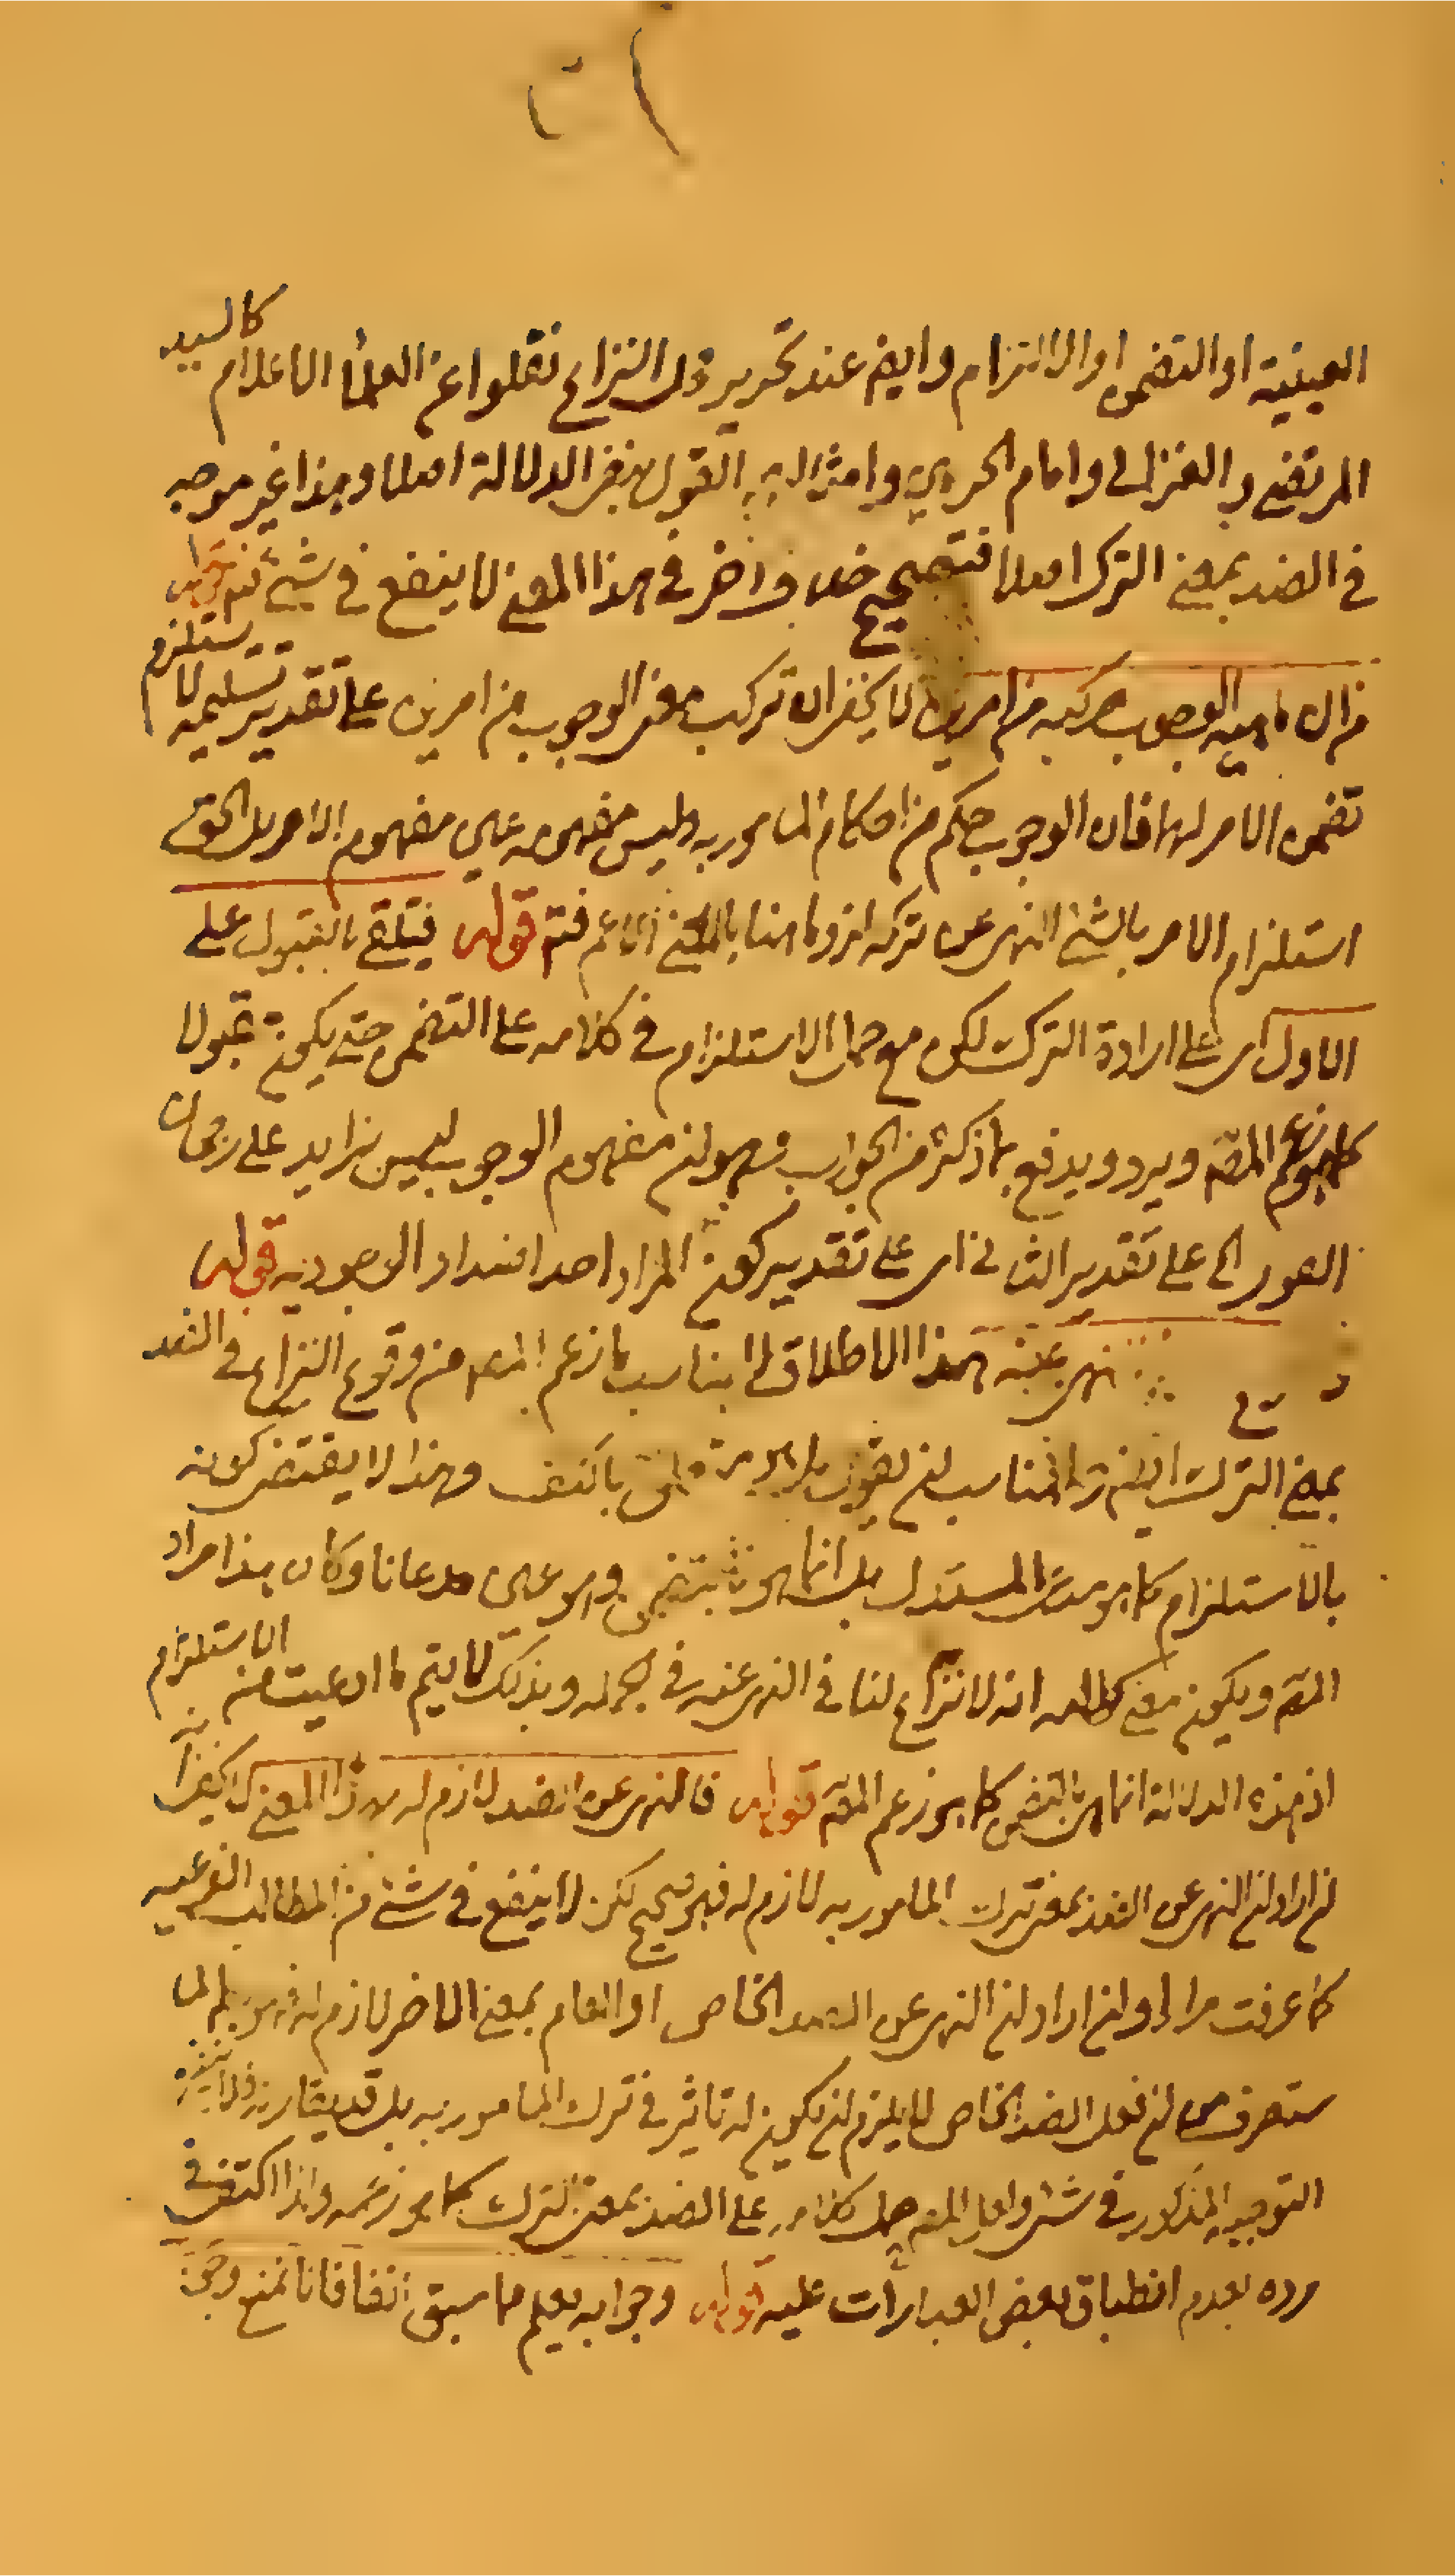 العينية او التضمن او الالتزام وايضا عند تحرير محل النزاع نقلوا عن العلماء الاعلام كالسيد
المرتضى والغزالى وامام الحرمين وامثالهم القول بنفى الدلالة اصلا وهذا غير موجه
فى الضد بمعنى الترك اصلا فتصحيح خلاف اخر فى هذا المعنى لا ينفع فى شئ قوله
من ان ماهية الوجوب مركبه من امرين لا يخفى ان تركب معنى الوجوب من امرين على تقدير تسليمه لا يستلزم
تضمن الامر لها فان الوجوب حكم من احكام المامور به وليس مفهومه عين مفهوم الامر بل الحق
استلزام الامر بالشئ النهى عن تركه لزوما بينا بالمعنى الاعم قوله فيتلقى بالقبول على
الاول اى على ارادة الترك لكن مع حمل الاستلزام فى كلامه على التضمن حتى يكون قبولا
كما هو زعم المصـ ويرد ويدفع بما ذكر من الجواب وهو ان مفهوم الوجوب ليس بزايد على رجحان
الفعل على تقدير الثانى اى على تقدير كون المراد احد اضداد الوجودية قوله
نهى عنه هذا الاطلاق لا يناسب ما زعم من وقوع النزاع فى الضد
بمعنى الترك المناسب ان يقول بالكف وهذا لا يقتضى كونه
بالاستلزام كما هو المستدل بل انما هو بالتضمن وهو عين مدعانا وكان هذا مراد
المصـ ويكون معنى كلامه انه لا نزاع لنا فى النهى عنه فى الجملة وبذلك لا يتم ما ادعيت من الاستلزام
اذ هذه الدلالة انما هى بالتضمن كما هو زعم المصـ قوله فالنهى عن الضد لازم له بهذا المعنى لا يخفى انه
ان اراد ان النهى عن الضد بمعنى ترك المامور به لازم له فهو صحيح لكن لا ينفع فى شئ من المطالب الفرعيه
كما عرفت مرارا وان اراد ان النهى عن الضد الخاص او العام بمعنى الاخر لازم له فهو لما
ستعرف من ان فعل الضد الخاص لا يلزم ان يكون له تاثير فى ترك المامور به بل قد يقارنه
التوجيه المذكور فى شئ ولعل المصـ حمل كلامه على الضد بمعنى الترك كما هو زعمه ولذا اكتفى فى
رده بعدم انطباق بعض العبارات عليه قوله وجوابه يعلم مما سبق انفا فانا نمنع